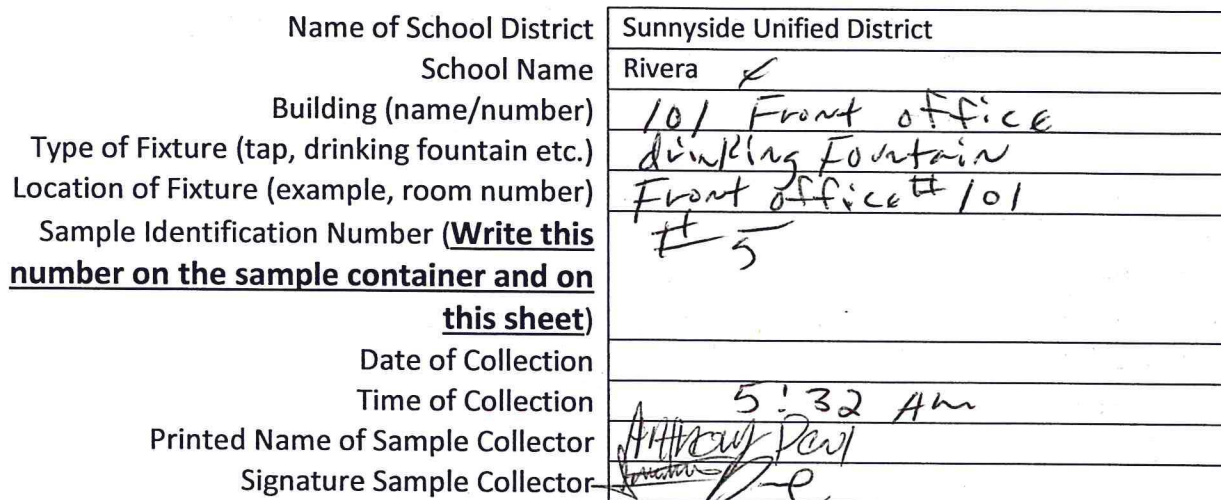 Name of School District Sunnyside Unified District
School Name Rivera
Building (name/number) 101 Front office
Type of Fixture (tap, drinking fountain etc.) drinking Fountain
Location of Fixture (example, room number) Front office # 101
Sample Identification Number (Write this # 5
number on the sample container and on
this sheet)
Date of Collection
Time of Collection 5:32 Am
Printed Name of Sample Collector Anthony
Signature Sample Collector